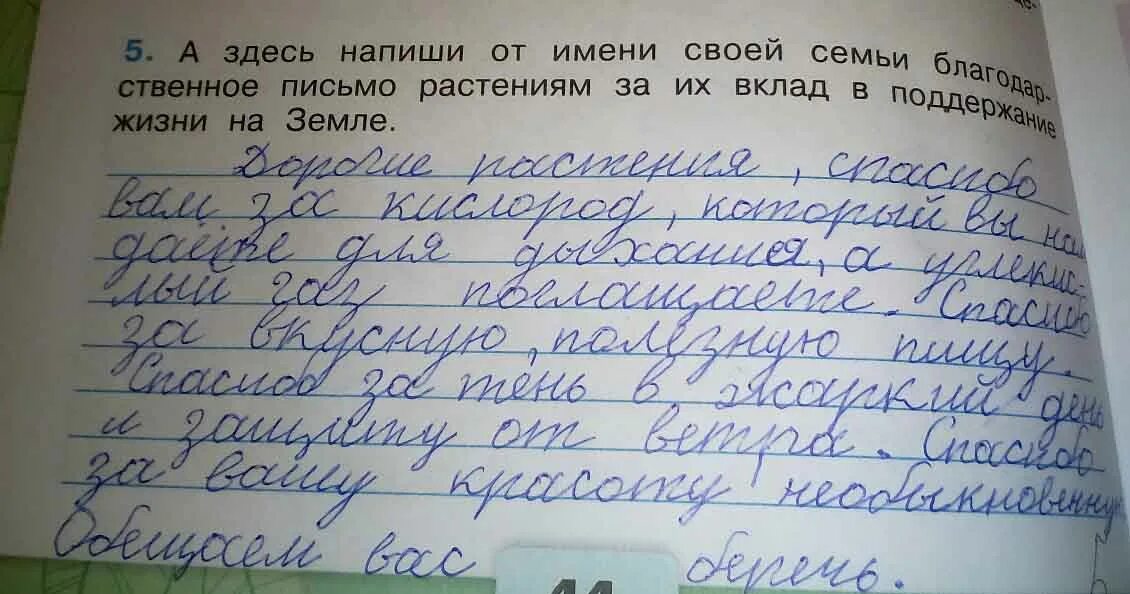 5. А здесь напиши от имени своей семьи благодар-
ственное письмо растениям за их вклад в поддержание
жизни на Земле.
Дорогие растения, спасибо
вам за кислород, который вы нам
даёте для дыхания, а углекис-
лый газ поглощаете. Спасибо
за вкусную, полезную пищу.
Спасибо за тень в жаркий день
и защиту от ветра. Спасибо
за вашу красоту необыкновенную
Обещаем вас беречь.
44